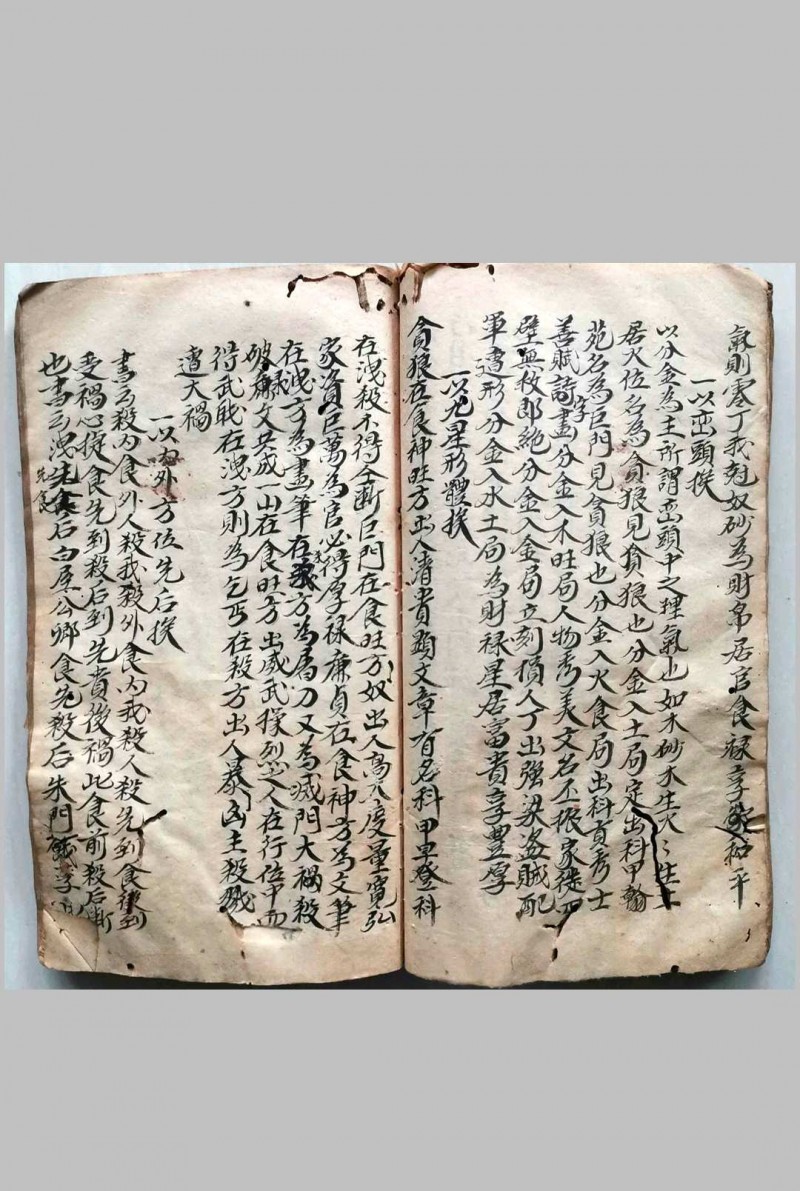 氣則零丁我尅奴砂為財帛居官食禄享和平
一以巒頭挨
以分金為主所謂巒頭中之理氣也如木砂木生火〻生土
居火位名為貪狼見貪狼也分金入土局定出科甲翰
苑名為巨門見貪狼也分金入火食局出科貢秀士
善賦詩字畫分金入木旺局人物秀美文名丕振家徒四
壁無救郎絶分金入金局立刻損人丁出強梁盗賊配
軍遭形分金入水土局為財禄星居富貴享豐厚
一以九星形體挨
貪狼在食神旺方出人清貴顕文章有名科甲早登科
在洩殺不得全斷巨門在食旺方奴出人高大度量寬弘
家資巨萬為官必得厚禄廉貞在食神方為文筆
在洩方為畫筆在我方為屠刀又為滅門大禍殺
破軍文共成一山在食旺方出威武操烈之人在行伍中而
得武職在洩方則為乞丐在殺方出人暴凶主殺戮
遭大禍
一以内外方位先后挨
書云殺内食外人殺我殺外食内我殺人殺先到食後到
受禍心掟食先到殺后到先貴後禍此食前殺后斷
也書云洩先食后白屋公卿食先殺后朱門餓莩
先食